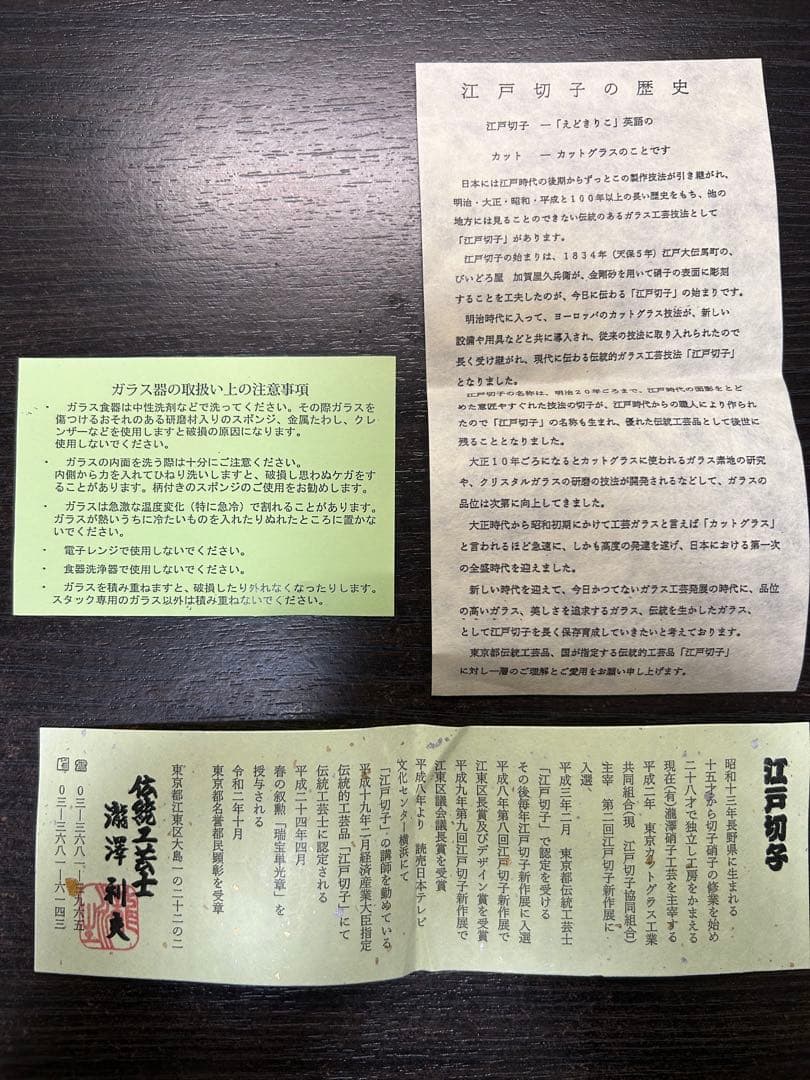 江戸切子の歴史
江戸切子 ―「えどきりこ」英語の
カット ― カットグラスのことです
日本には江戸時代の後期からずっとこの製作技法が引き継がれ、
明治・大正・昭和・平成と100年以上の長い歴史をもち、他の
地方には見ることのできない伝統のあるガラス工芸技法として
「江戸切子」があります。
江戸切子の始まりは、1834年（天保5年）江戸大伝馬町の、
びいどろ屋 加賀屋久兵衛が、金剛砂を用いて硝子の表面に彫刻
することを工夫したのが、今日に伝わる「江戸切子」の始まりです。
明治時代に入って、ヨーロッパのカットグラス技法が、新しい
設備や用具などと共に導入され、従来の技法に取り入れられたので
長く受け継がれ、現代に伝わる伝統的ガラス工芸技法「江戸切子」
となりました。
江戸切子の名称は、明治20年ごろまで、江戸時代の面影をとど
めた意匠やすぐれた技法の切子が、江戸時代からの職人により作られ
たので「江戸切子」の名称も生まれ、優れた伝統工芸品として後世に
残ることとなりました。
大正10年ごろになるとカットグラスに使われるガラス素地の研究
や、クリスタルガラスの研磨の技法が開発されるなどして、ガラスの
品位は次第に向上してきました。
大正時代から昭和初期にかけて工芸ガラスと言えば「カットグラス」
と言われるほど急速に、しかも高度の発達を遂げ、日本における第一次
の全盛時代を迎えました。
新しい時代を迎えて、今日かつてないガラス工芸発展の時代に、品位
の高いガラス、美しさを追求するガラス、伝統を生かしたガラス、
として江戸切子を長く保存育成していきたいと考えております。
東京都伝統工芸品、国が指定する伝統的工芸品「江戸切子」
に対し一層のご理解とご愛用をお願い申し上げます。
ガラス器の取扱い上の注意事項
・ ガラス食器は中性洗剤などで洗ってください。その際ガラスを
傷つけるおそれのある研磨材入りのスポンジ、金属たわし、クレ
ンザーなどを使用しますと破損の原因になります。
使用しないでください。
・ ガラスの内面を洗う際は十分にご注意ください。
内側から力を入れてひねり洗いしますと、破損し思わぬケガをす
ることがあります。柄付きのスポンジのご使用をお勧めします。
・ ガラスは急激な温度変化（特に急冷）で割れることがあります。
ガラスが熱いうちに冷たいものを入れたりぬれたところに置かな
いでください。
・ 電子レンジで使用しないでください。
・ 食器洗浄器で使用しないでください。
・ ガラスを積み重ねますと、破損したり外れなくなったりします。
スタック専用のガラス以外は積み重ねないでください。
江戸切子
昭和十三年長野県に生まれる
十五才から切子硝子の修業を始め
二十八才で独立し工房をかまえる
現在(有)瀧澤硝子工芸を主宰する
平成二年 東京カットグラス工業
共同組合(現 江戸切子協同組合)
主宰 第二回江戸切子新作展に
入選、
平成三年二月 東京都伝統工芸士
「江戸切子」で認定を受ける
その後毎年江戸切子新作展に入選
平成八年第八回江戸切子新作展で
江東区長賞及びデザイン賞を受賞
平成九年第九回江戸切子新作展で
江東区議会議長賞を受賞
平成八年より 読売日本テレビ
文化センター横浜にて
「江戸切子」の講師を勤めている
平成十九年二月経済産業大臣指定
伝統的工芸品「江戸切子」にて
伝統工芸士に認定される
平成二十四年四月
春の叙勲「瑞宝単光章」を
授与される
令和二年十月
東京都名誉都民顕彰を受章
東京都江東区大島一の二十二の二
伝統工芸士
瀧澤利夫
〇三―三六八一―三九六五
〇三―三六八一―六一四三